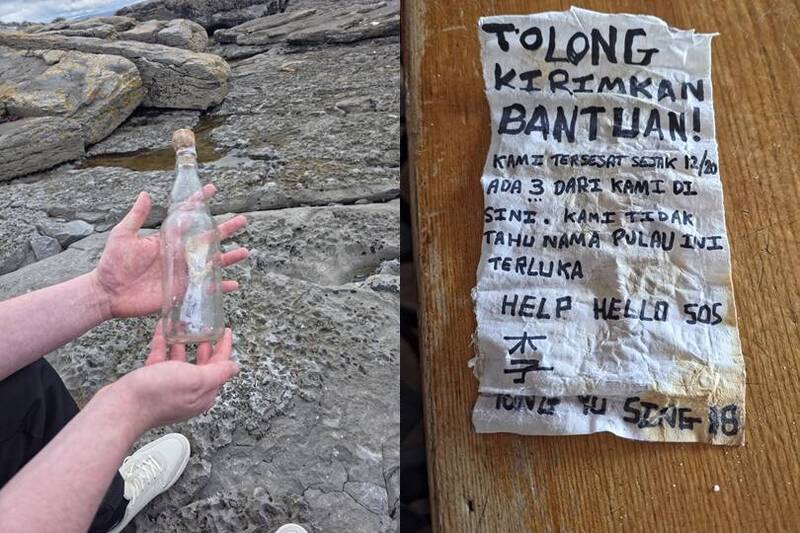 TOLONG
KIRIMKAN
BANTUAN!
KAMI TERSESAT SEJAK 12/20
ADA 3 DARI KAMI DI
SINI. KAMI TIDAK
TAHU NAMA PULAU INI
TERLUKA
HELP HELLO SOS
李
YONG YU SING 18